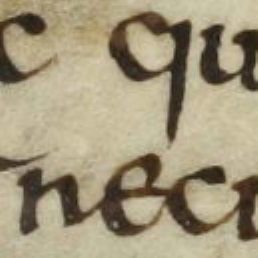 c qu
nec